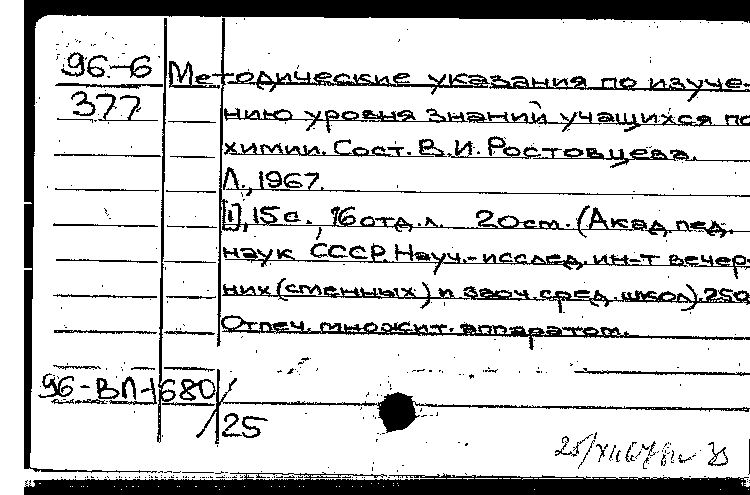 96-6 Методические указания по изуче-
377 нию уровня знаний учащихся по
химии. Сост. В.И. Ростовцева.
Л., 1967.
[1], 15 с., 16 отд. л. 20 см. (Акад. пед.
наук СССР. Науч.-исслед. ин-т вечер-
них (сменных) и заоч. сред. школ). 250
Отпеч. множит. аппаратом.
96-ВЛ-1680/
25